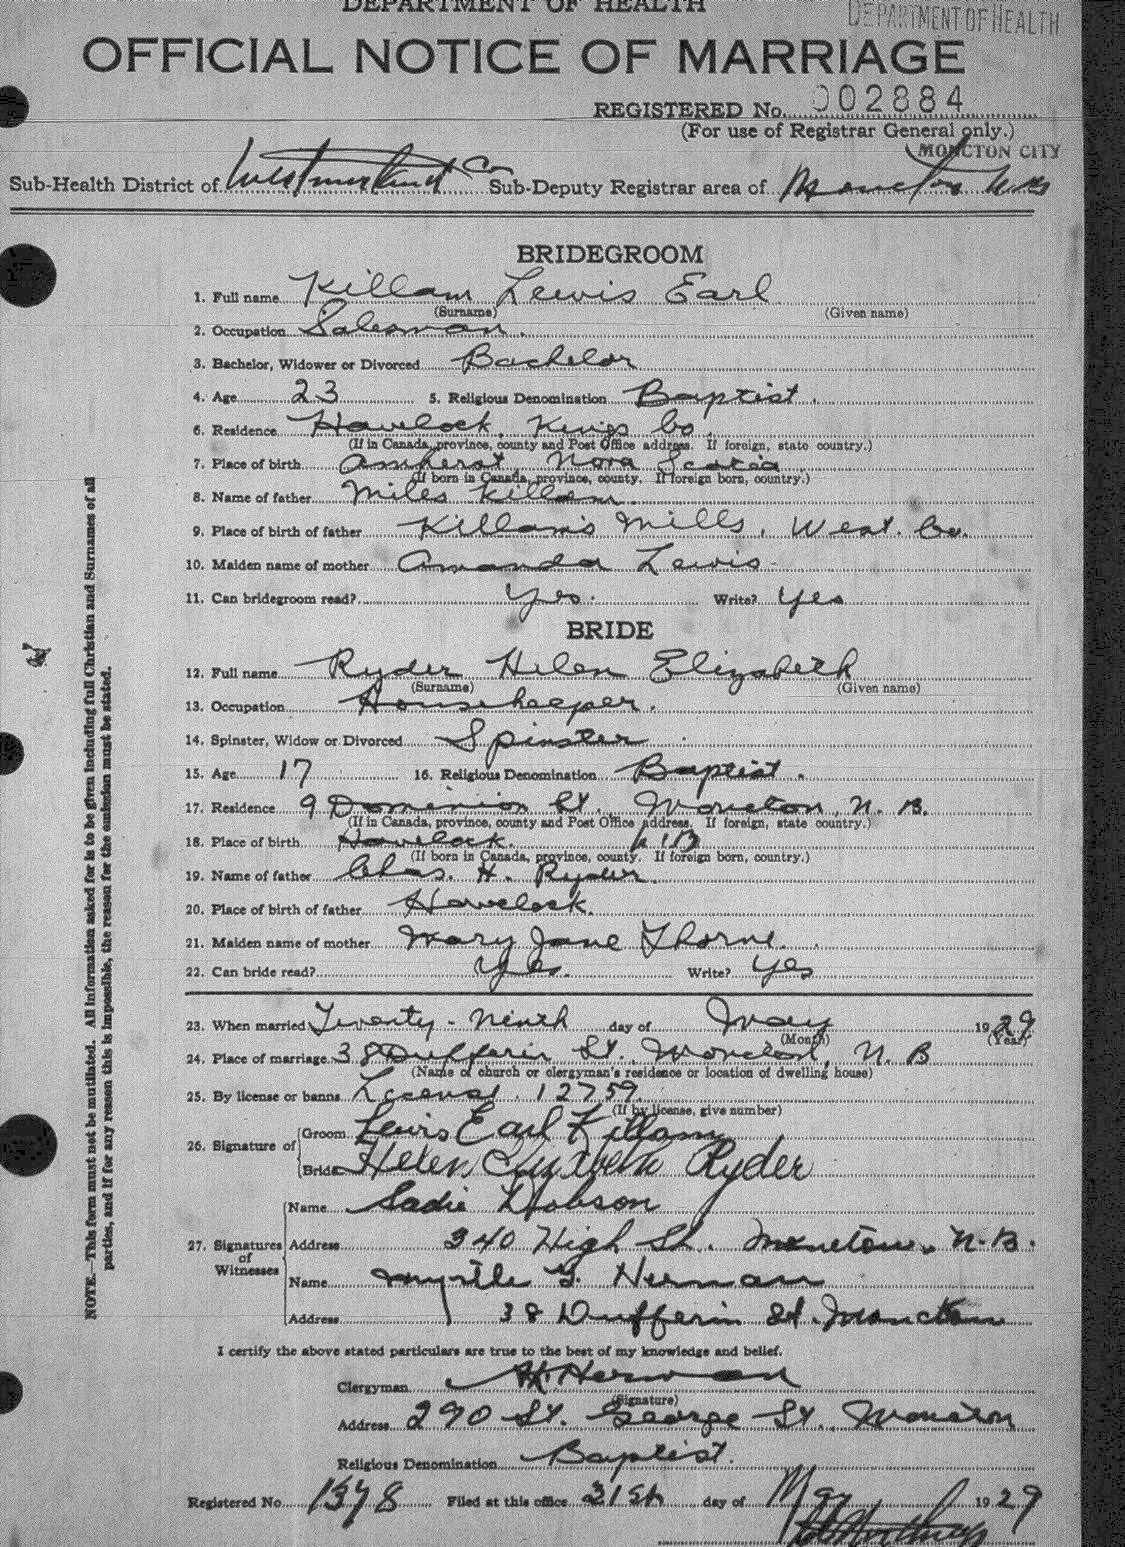 DEPARTMENT OF HEALTH
DEPARTMENT OF HEALTH
OFFICIAL NOTICE OF MARRIAGE
REGISTERED No. 002884
(For use of Registrar General only.)
MONCTON CITY
Sub-Health District of Westmorland Co Sub-Deputy Registrar area of Moncton N.B
BRIDEGROOM
1. Full name Killam Lewis Earl
(Surname) (Given name)
2. Occupation Salesman.
3. Bachelor, Widower or Divorced Bachelor
4. Age 23 5. Religious Denomination Baptist.
6. Residence Havelock, Kings Co.
(If in Canada, province, county and Post Office address. If foreign, state country.)
7. Place of birth Amherst, Nova Scotia
(If born in Canada, province, county. If foreign born, country.)
8. Name of father Miles Killam.
9. Place of birth of father Killam's Mills, West. Co.
10. Maiden name of mother Amanda Lewis
11. Can bridegroom read? Yes. Write? Yes
BRIDE
12. Full name Ryder Helen Elizabeth
(Surname) (Given name)
13. Occupation Housekeeper.
14. Spinster, Widow or Divorced Spinster
15. Age 17 16. Religious Denomination Baptist.
17. Residence 9 Dominion St. Moncton, N. B.
(If in Canada, province, county and Post Office address. If foreign, state country.)
18. Place of birth Havelock. N.B
(If born in Canada, province, county. If foreign born, country.)
19. Name of father Chas. H. Ryder.
20. Place of birth of father Havelock.
21. Maiden name of mother Mary Jane Thorne.
22. Can bride read? Yes. Write? Yes
23. When married Twenty-Ninth day of May 1929
(Month) (Year)
24. Place of marriage 38 Dufferin St. Moncton, N. B
(Name of church or clergyman's residence or location of dwelling house)
25. By license or banns License. 12759.
(If by license, give number)
26. Signature of
Groom Lewis Earl Killam
Bride Helen Elizabeth Ryder
27. Signatures of Witnesses
Name Sadie Dobson
Address 340 High St. Moncton, N.B.
Name Myrtle G. Herman
Address 38 Dufferin St. Moncton
I certify the above stated particulars are true to the best of my knowledge and belief.
Clergyman Herman
(Signature)
Address 290 St. George St. Moncton
Religious Denomination Baptist.
Registered No. 1398 Filed at this office 31st day of May 1929
NOTE.—This form must not be mutilated. All information asked for is to be given including full Christian and Surnames of all
parties, and if for any reason this is impossible, the reason for the omission must be stated.